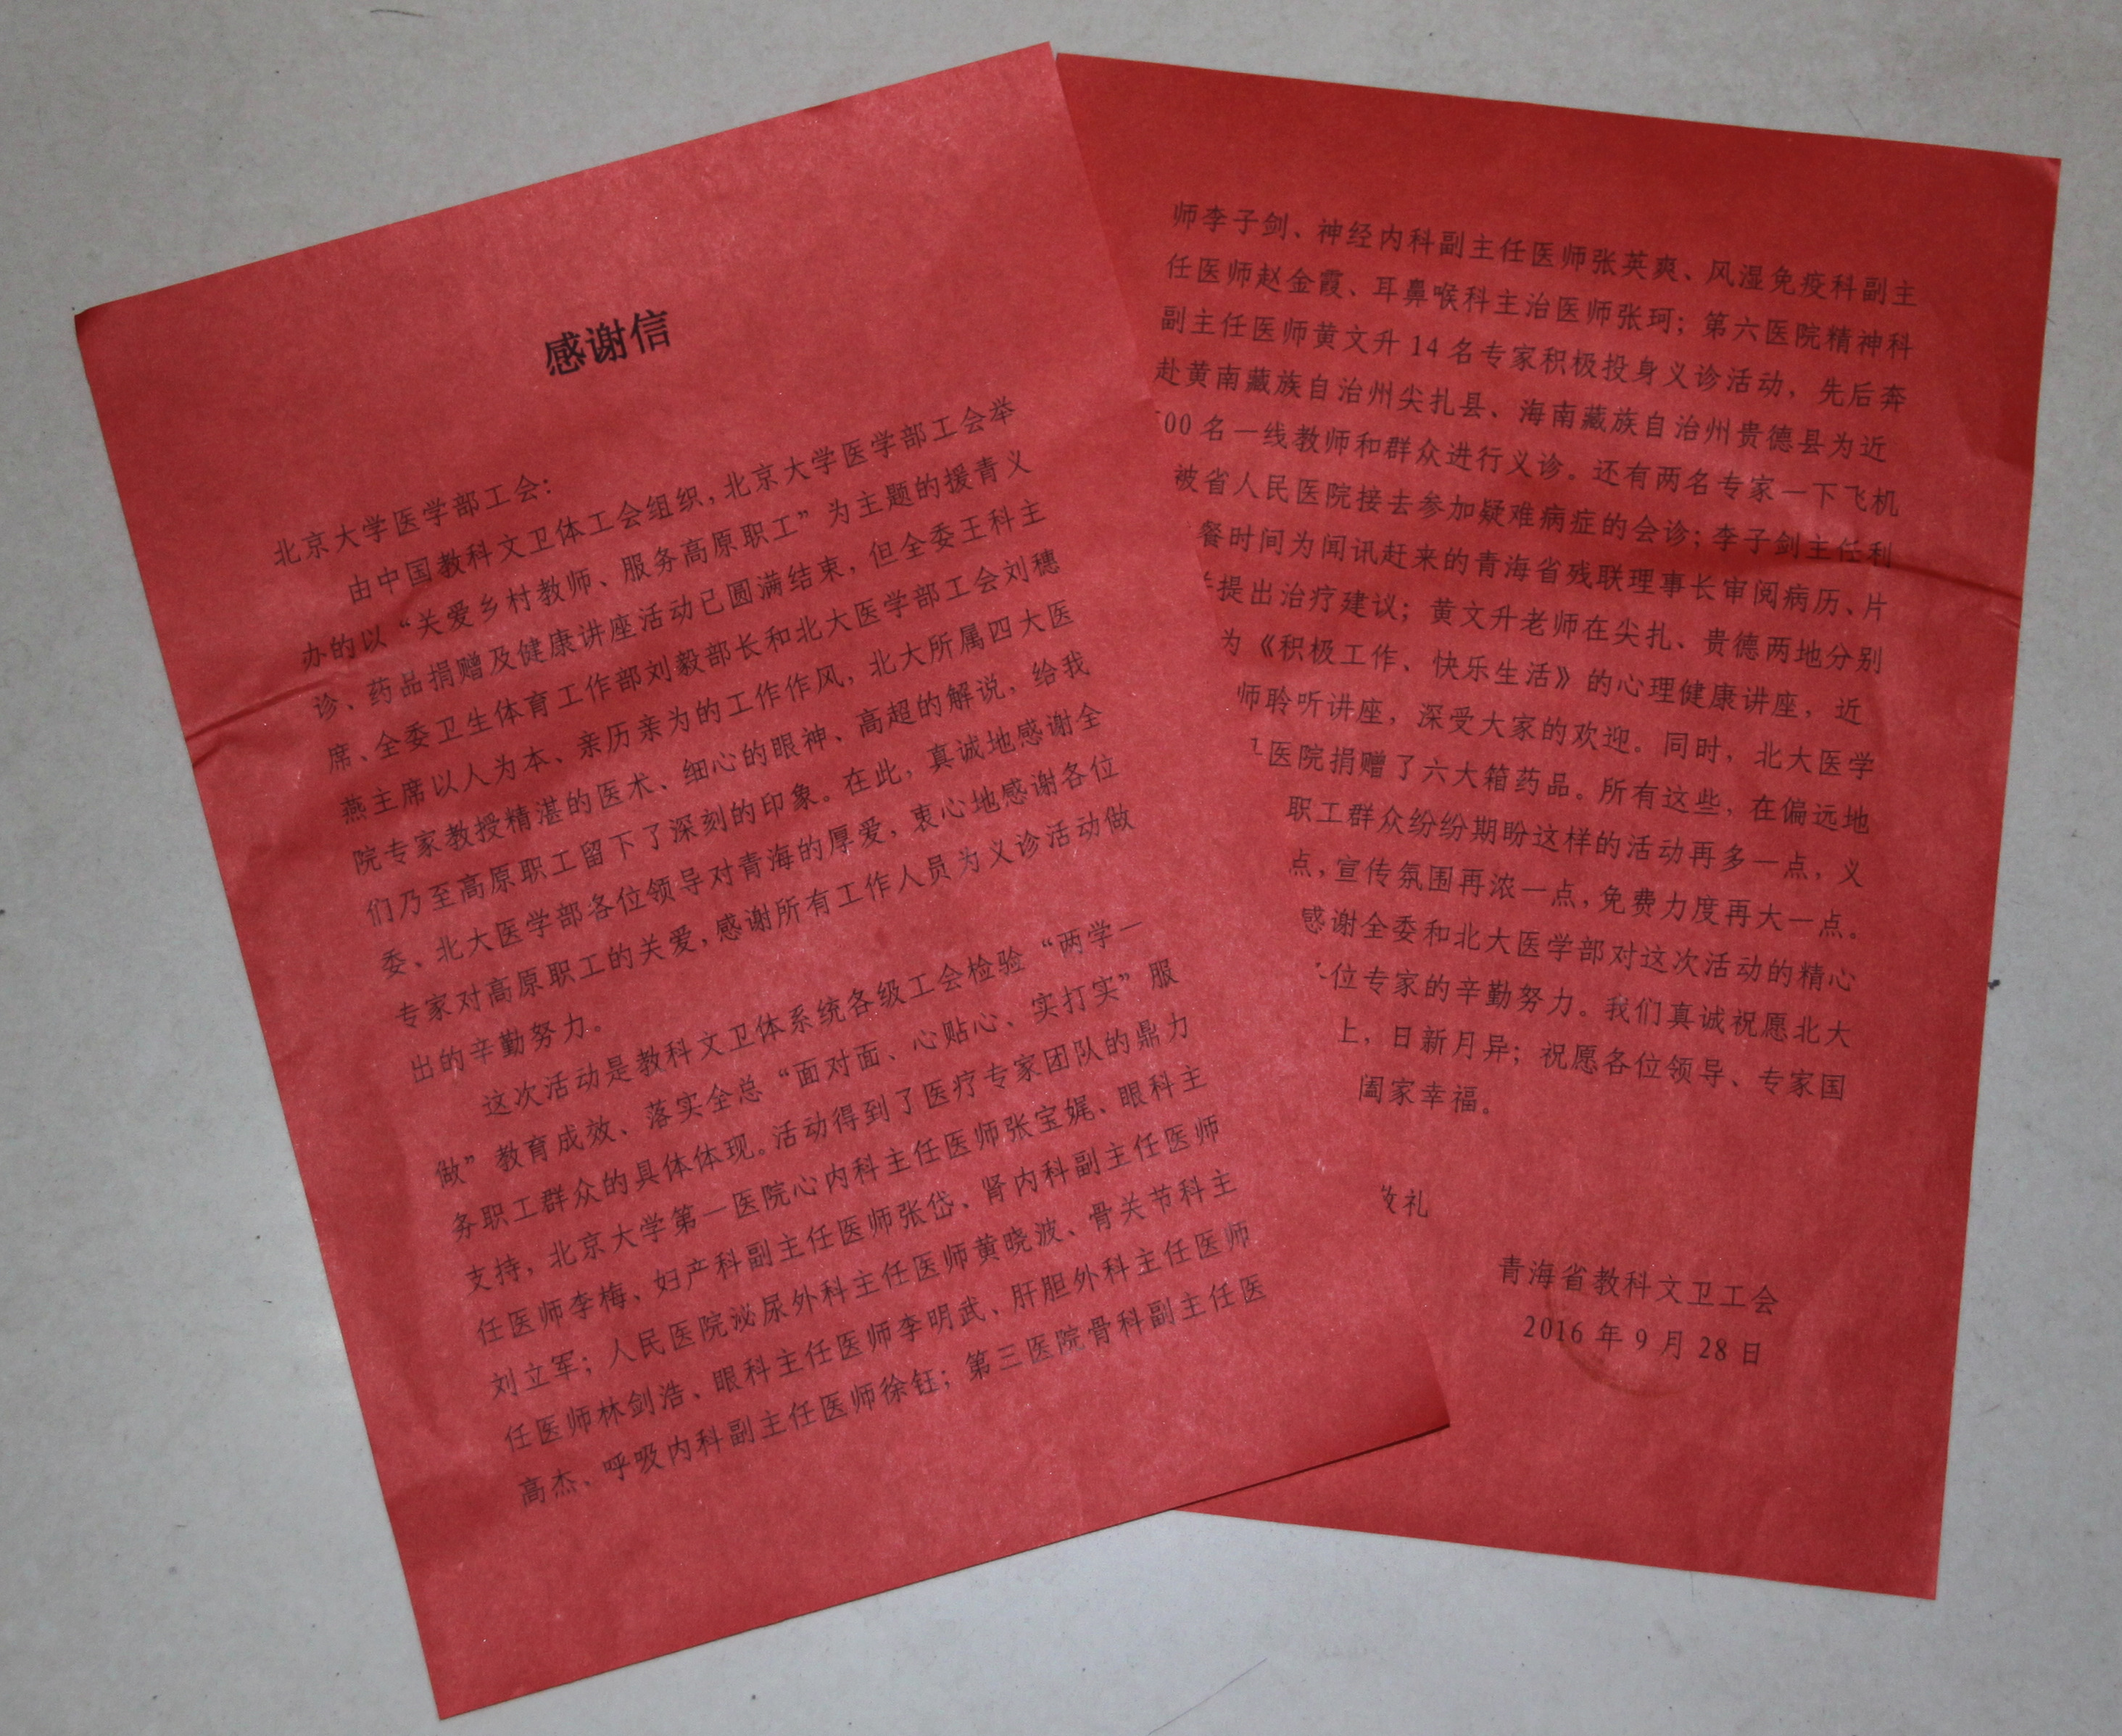 感谢信
北京大学医学部工会：
由中国教科文卫体工会组织，北京大学医学部工会举
办的以“关爱乡村教师、服务高原职工”为主题的援青义
诊、药品捐赠及健康讲座活动已圆满结束，但全委王科主
席、全委卫生体育工作部刘毅部长和北大医学部工会刘穗
燕主席以人为本、亲历亲为的工作作风，北大所属四大医
院专家教授精湛的医术、细心的眼神、高超的解说，给我
们乃至高原职工留下了深刻的印象。在此，真诚地感谢全
委、北大医学部各位领导对青海的厚爱，衷心地感谢各位
专家对高原职工的关爱，感谢所有工作人员为义诊活动做
出的辛勤努力。
这次活动是教科文卫体系统各级工会检验“两学一
做”教育成效、落实全总“面对面、心贴心、实打实”服
务职工群众的具体体现。活动得到了医疗专家团队的鼎力
支持，北京大学第一医院心内科主任医师张宝娓、眼科主
任医师李梅、妇产科副主任医师张岱、肾内科副主任医师
刘立军；人民医院泌尿外科主任医师黄晓波、骨关节科主
任医师林剑浩、眼科主任医师李明武、肝胆外科主任医师
高杰、呼吸内科副主任医师徐钰；第三医院骨科副主任医
师李子剑、神经内科副主任医师张英爽、风湿免疫科副主
任医师赵金霞、耳鼻喉科主治医师张珂；第六医院精神科
副主任医师黄文升 14 名专家积极投身义诊活动，先后奔
赴黄南藏族自治州尖扎县、海南藏族自治州贵德县为近
00 名一线教师和群众进行义诊。还有两名专家一下飞机
被省人民医院接去参加疑难病症的会诊；李子剑主任利
餐时间为闻讯赶来的青海省残联理事长审阅病历、片
提出治疗建议；黄文升老师在尖扎、贵德两地分别
为《积极工作、快乐生活》的心理健康讲座，近
师聆听讲座，深受大家的欢迎。同时，北大医学
医院捐赠了六大箱药品。所有这些，在偏远地
职工群众纷纷期盼这样的活动再多一点，义
点，宣传氛围再浓一点，免费力度再大一点。
感谢全委和北大医学部对这次活动的精心
位专家的辛勤努力。我们真诚祝愿北大
上，日新月异；祝愿各位领导、专家国
阖家幸福。
礼
青海省教科文卫工会
2016 年 9 月 28 日